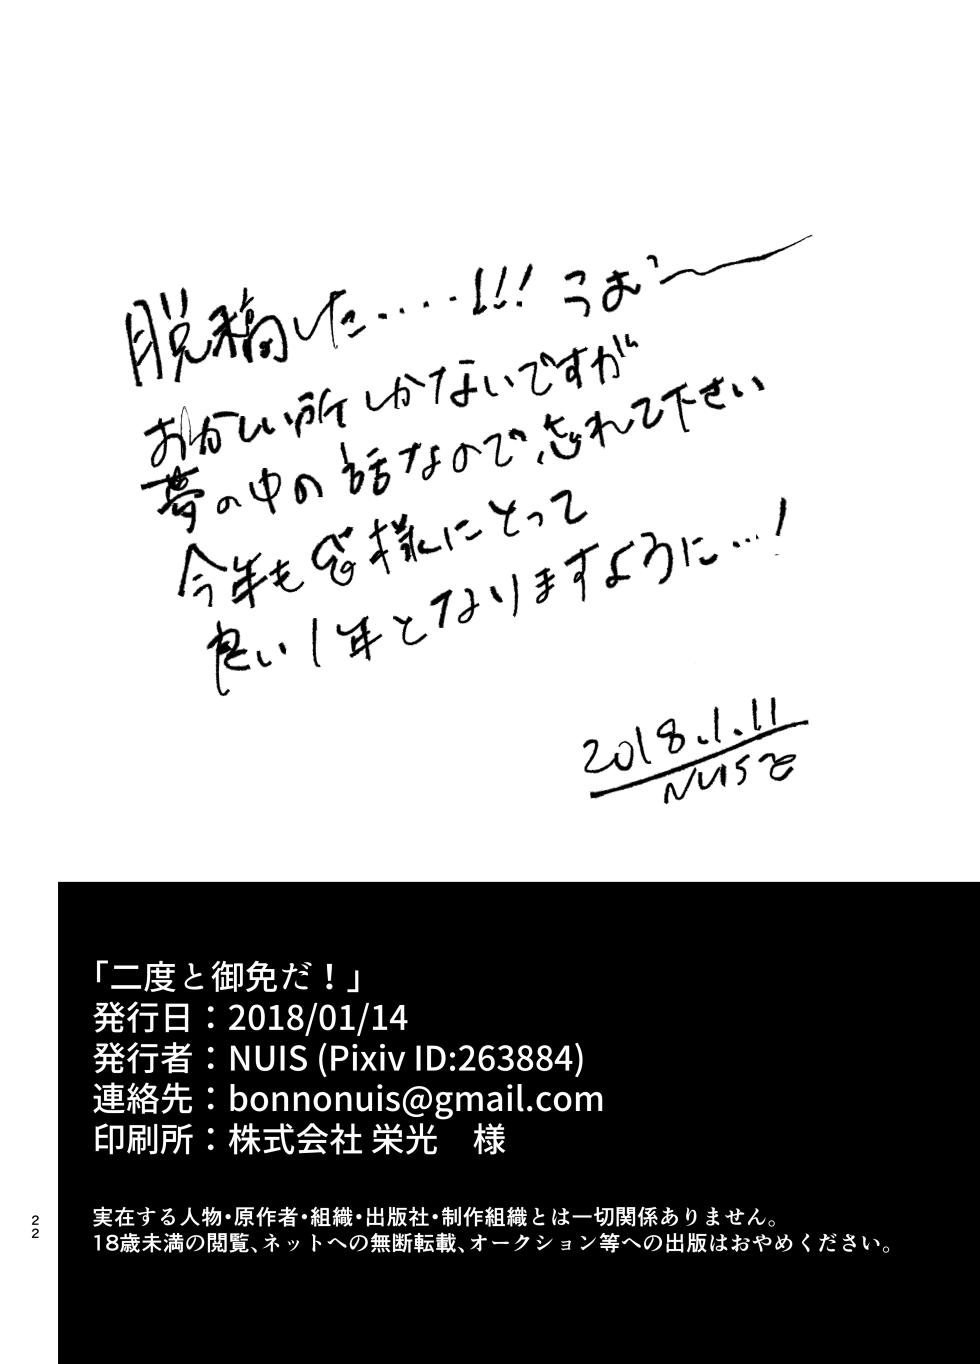 脱稿した・・・・!!! うお〜
おかしい所しかないですが
夢の中の話なので忘れて下さい
今年も皆様にとって
良い1年となりますように…!
2018.1.11
NUIS
「二度と御免だ！」
発行日：2018/01/14
発行者：NUIS (Pixiv ID:263884)
連絡先：bonnonuis@gmail.com
印刷所：株式会社 栄光　様
実在する人物・原作者・組織・出版社・制作組織とは一切関係ありません。
18歳未満の閲覧、ネットへの無断転載、オークション等への出版はおやめください。
22